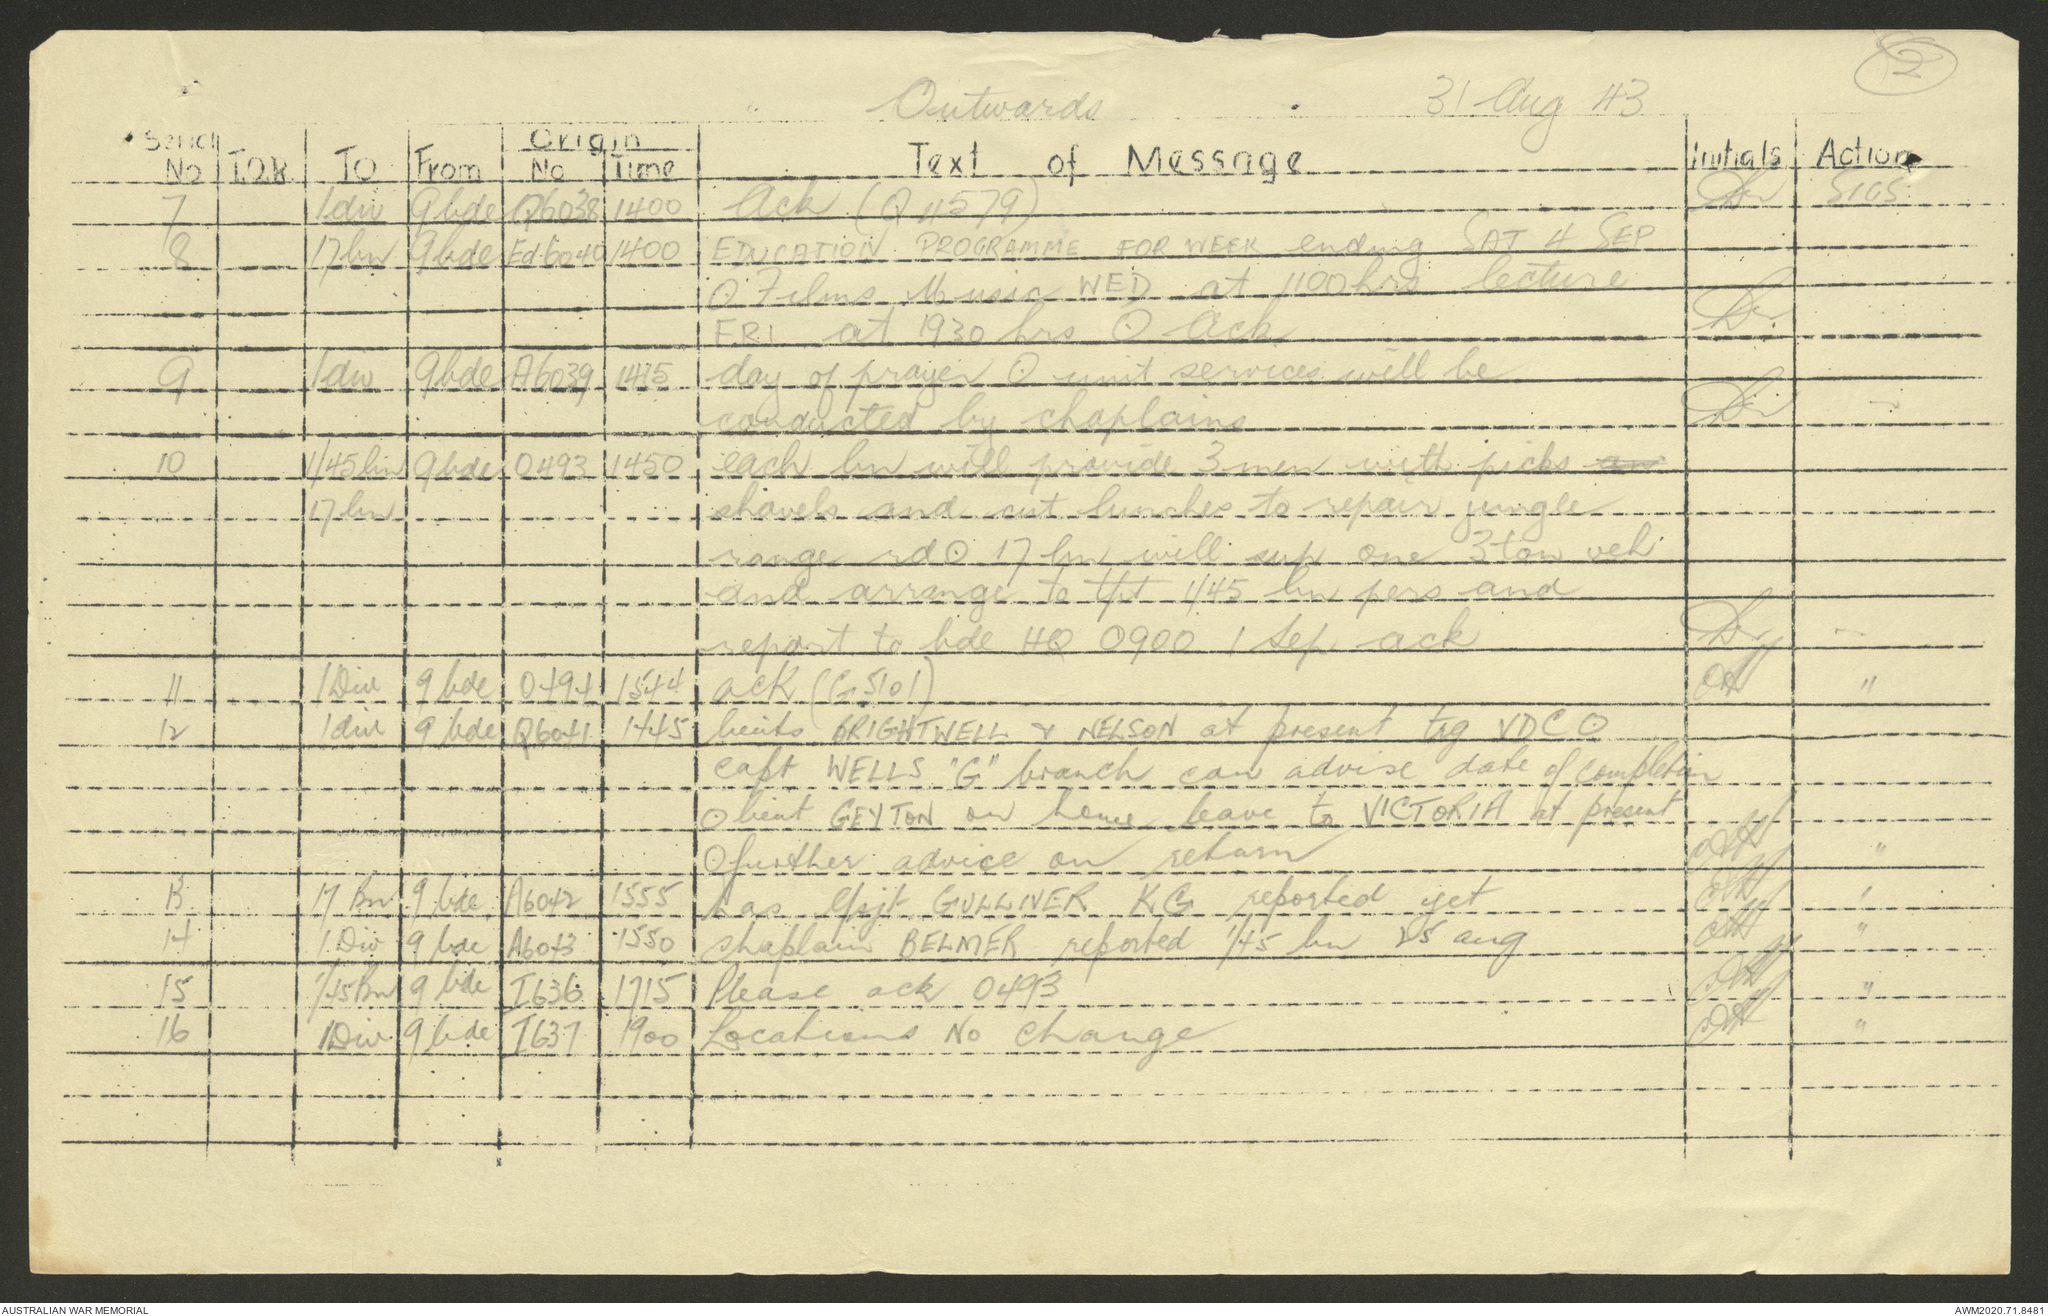 2
Outwards 31 Aug 43
Serial No T.O.R. To From Origin No Time Text of Message Initials Action
7 1 div 9 bde Q6038 1400 Ack (Q 11579) SIGS
8 17 bn 9 bde Ed 6040 1400 EDUCATION PROGRAMME FOR WEEK ending SAT 4 SEP
O Films Music WED at 1100 hrs lecture
FRI at 1930 hrs O Ack
9 1 div 9 bde A6039 1415 day of prayer O unit services will be
conducted by chaplains
10 1/45 bn 9 bde O493 1450 each bn will provide 3 men with picks an
17 bn shovels and cut lunches to repair jungle
range rd O 17 bn will sup one 3 ton veh
and arrange to tpt 1/45 bn pers and
report to bde HQ 0900 1 Sep ack
11 1 Div 9 bde O494 1544 ack (G5101) "
12 1 div 9 bde Q6041 1445 lieuts BRIGHTWELL & NELSON at present trg VDC O
capt WELLS "G" branch can advise date of completion
O lieut GEYTON on home leave to VICTORIA at present
O further advice on return "
13 17 Bn 9 bde A6042 1555 has GULLIVER KG reported yet "
14 1 Div 9 bde A6043 1550 chaplain BELMER reported 1/45 bn 25 aug "
15 1/45 Bn 9 bde I636 1715 Please ack O493 "
16 1 Div 9 bde I637 1900 Locations No change "
AUSTRALIAN WAR MEMORIAL AWM2020.71.8481